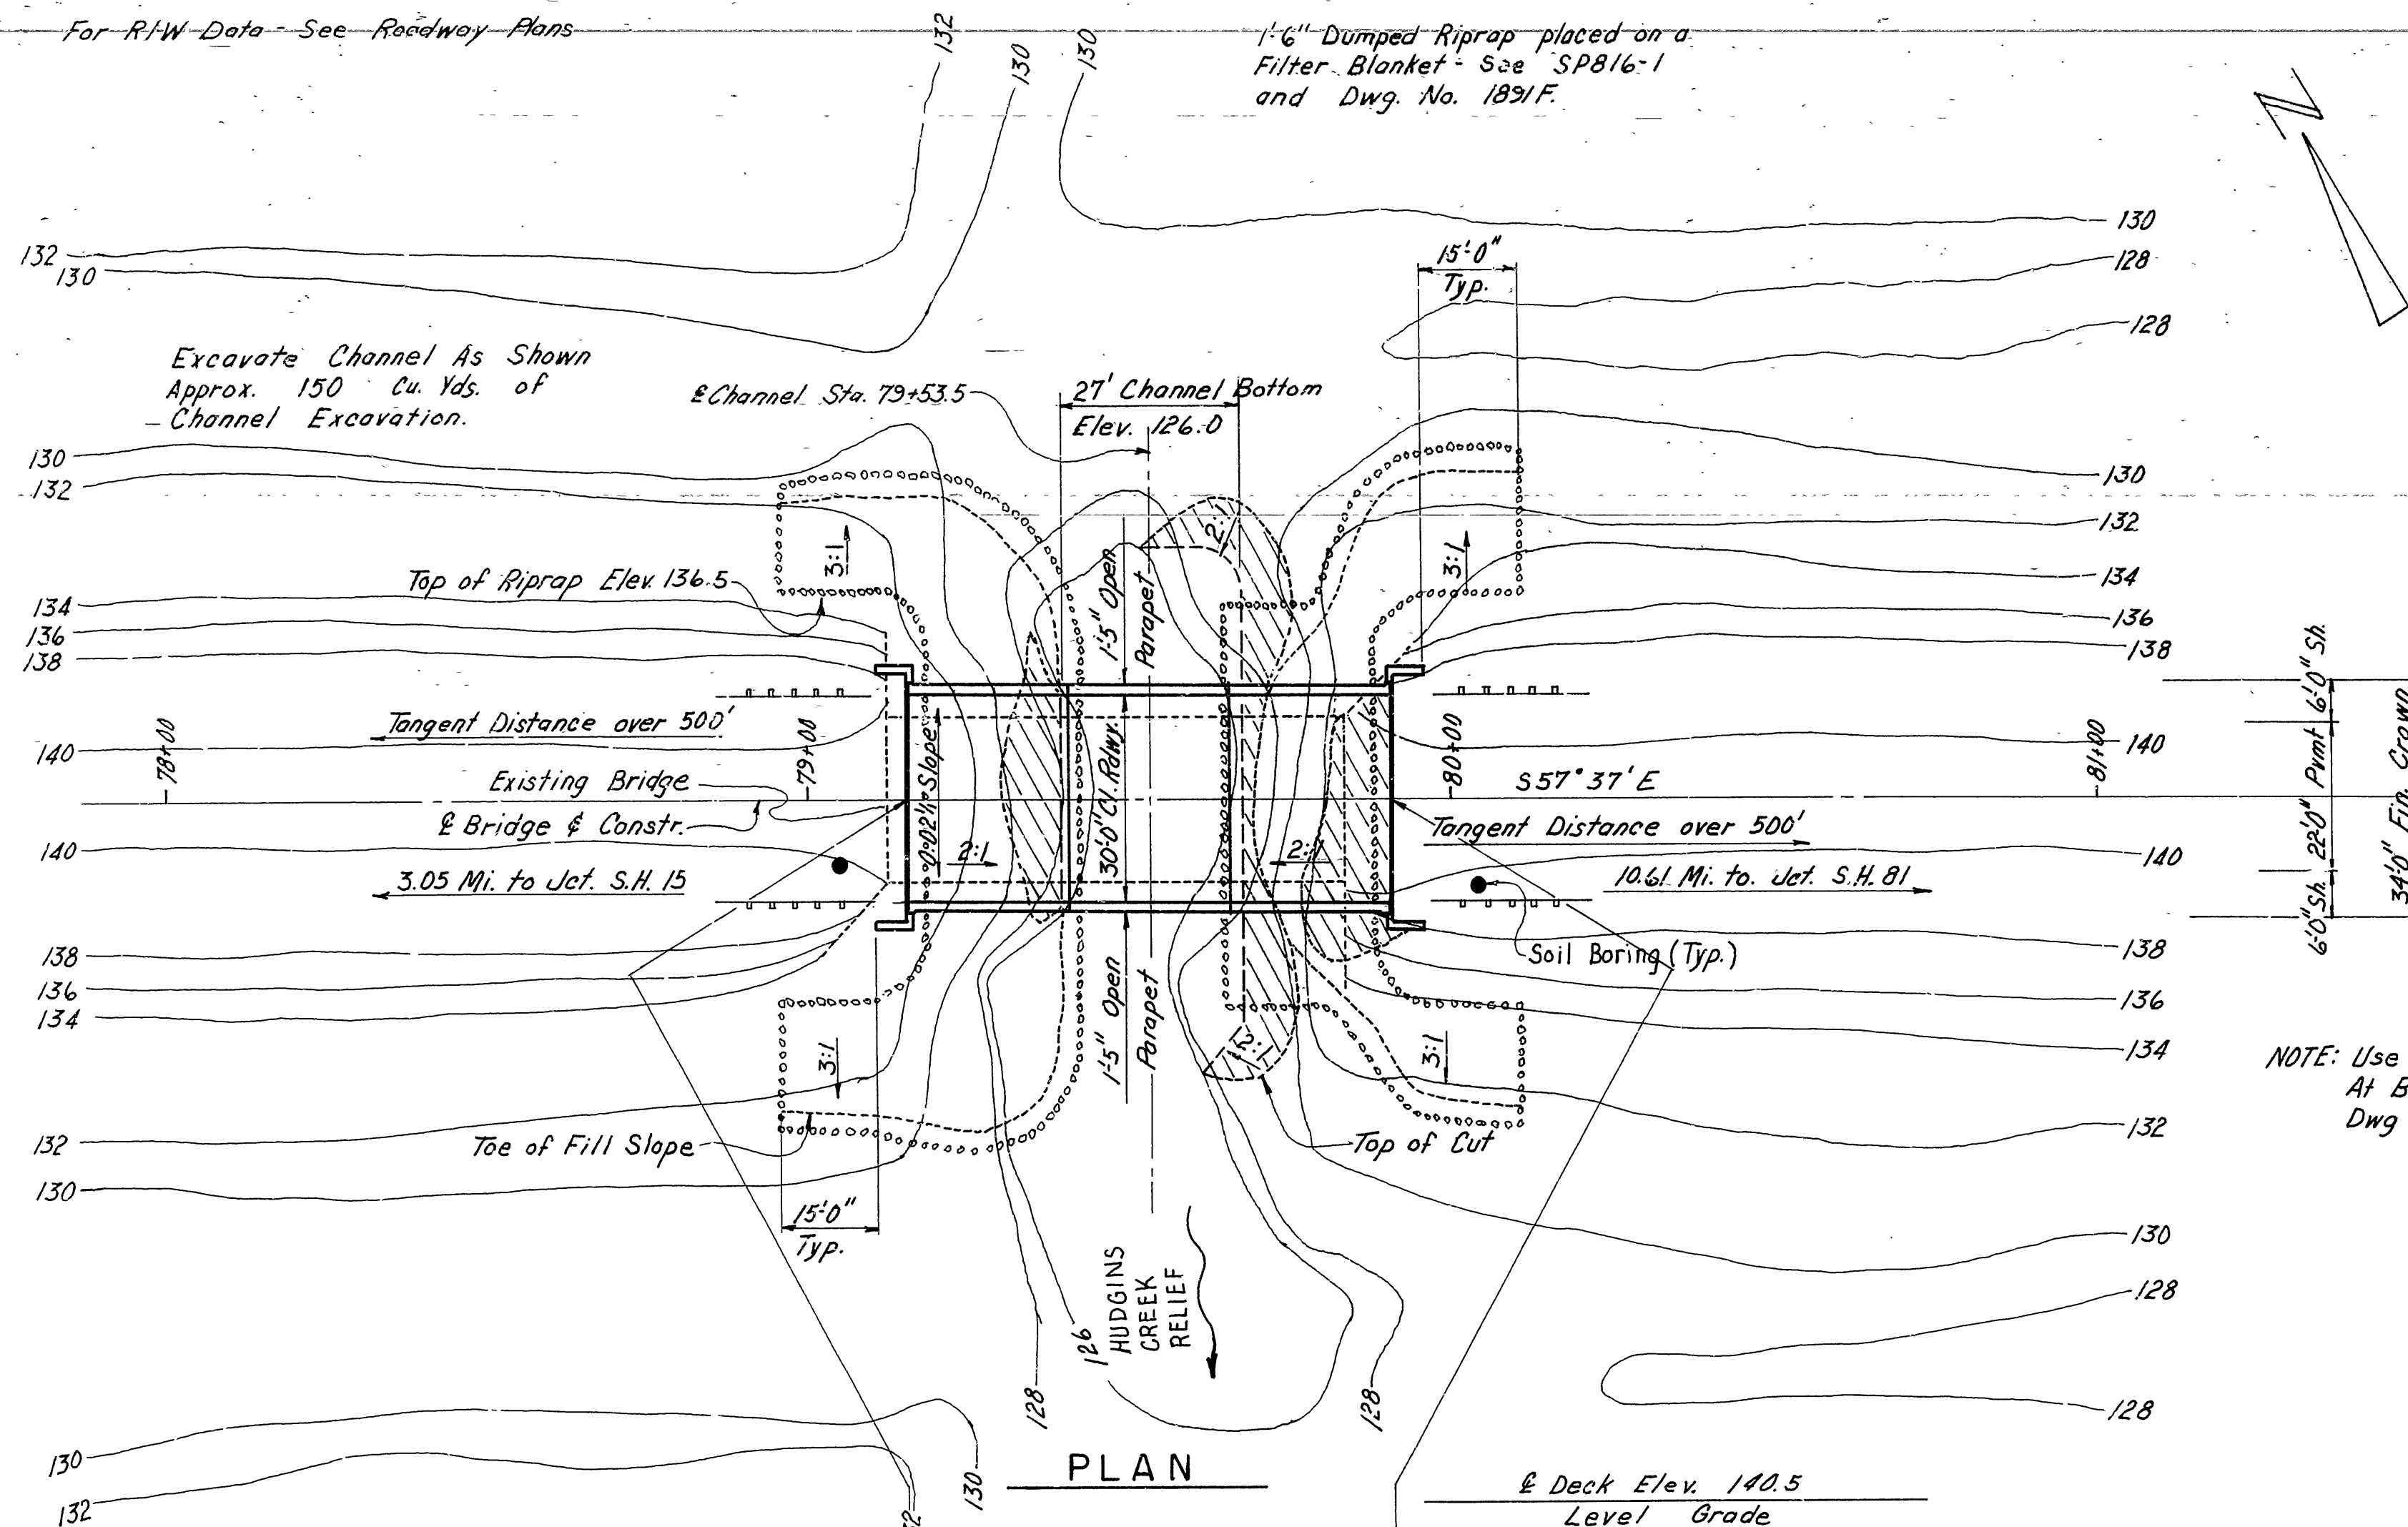 For R/W Data - See Roadway Plans
1'-6" Dumped Riprap placed on a
Filter Blanket - See SP816-1
and Dwg. No. 1891F.
N
132
130
130
132
130
130
128
128
15'-0"
Typ.
Excavate Channel As Shown
Approx. 150 Cu. Yds. of
Channel Excavation.
℄ Channel Sta. 79+53.5
27' Channel Bottom
Elev. 126.0
130
132
130
132
134
136
138
3:1
2:1
3:1
1'-5" Open
Parapet
Top of Riprap Elev. 136.5
134
136
138
Tangent Distance over 500'
140
78+00
79+00
80+00
81+00
140
Existing Bridge
℄ Bridge & Constr.
0.02'/' Slope
30'-0" Cl. Rdwy.
S 57° 37' E
Tangent Distance over 500'
2:1
2:1
140
140
3.05 Mi. to Jct. S.H. 15
10.61 Mi. to. Jct. S.H. 81
6'-0" Sh.
22'-0" Pvmt
6'-0" Sh.
34'-0" Fin. Crown
138
136
134
Soil Boring (Typ.)
138
136
134
132
1'-5" Open
Parapet
3:1
2:1
3:1
NOTE: Use
At B
Dwg
132
Toe of Fill Slope
Top of Cut
130
15'-0"
Typ.
130
128
128
HUDGINS
CREEK
RELIEF
126
128
128
130
132
130
PLAN
℄ Deck Elev. 140.5
Level Grade